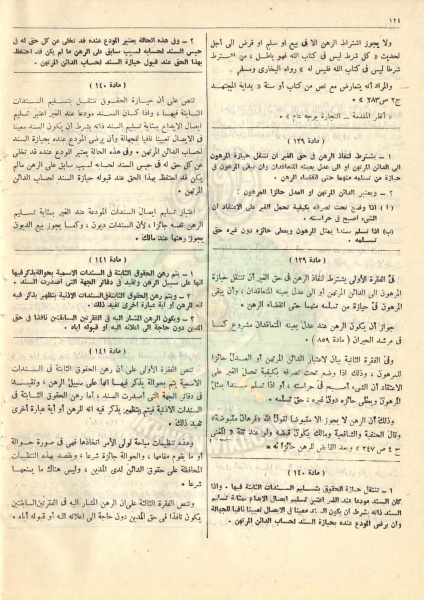 ١٢٤
ولا يجوز اشتراط الرهن الا فى بيع او سلم او قرض الى أجل
لحديث « كل شرط ليس فى كتاب الله فهو باطل ، من اشترط
شرطا ليس فى كتاب الله فليس له » رواه البخارى ومسلم
والمراد أنه يتعارض مع نص من كتاب أو سنة « بداية المجتهد
ج ٢ ص ٢٨٣ »
« أنظر المقدمة ـ التجارة بوجه عام »
( مادة ١٣٩ )
١ ـ يشترط لنفاذ الرهن فى حق الغير ان تنتقل حيازة المرهون
الى الدائن المرتهن او الى عدل يعينه المتعاقدان وان يبقى المرهون فى
حيازة من تسلمه منهما حتى انقضاء الرهن .
٢ ـ ويعتبر الدائن المرتهن او العدل حائزا للمرهون :
( أ ) اذا وضع تحت تصرفه بكيفية تحمل الغير على الاعتقاد ان
الشىء اصبح فى حراسته .
(ب) اذا تسلم سندا يمثل المرهون ويعطى حائزه دون غيره حق
تسلمه .
( مادة ١٣٩ )
فى الفقرة الأولى يشترط لنفاذ الرهن فى حق الغير أن تنتقل حيازة
المرهون الى الدائن المرتهن أو الى عدل يعينه المتعاقدان ، وأن يبقى
المرهون فى حيازة من تسلمه منهما حتى انقضاء الرهن .
جواز أن يكون الرهن عند عدل يعينه المتعاقدان مشروع كما
فى مرشد الحيران ( مادة ٨٥٩ )
وفى الفقرة الثانية بيان لاعتبار الدائن المرتهن أو العدل حائزا
للمرهون ، وذلك اذا وضع تحت تصرفه بكيفية تحمل الغير على
الاعتقاد أن الشىء أصبح فى حراسته ، أو اذا تسلم سندا يمثل
المرهون ويعطى حائزه دون غيره ، حق تسلمه .
وذلك أن الرهن لا يجوز الا مقبوضا لقول الله فرهان مقبوضة
وقال الحنفية والشافعية ومالك يكون قبضه ولو عند ثقة « المغنى
ج ٤ ص ٢٤٧ » وبعد القابض للرهن حائزا له .
( مادة ١٤٠ )
١ ـ تنتقل حيازة الحقوق بتسليم السندات الثابتة فيها ، واذا
كان السند مودعا عند الغير اعتبر تسليم ايصال الايداع بمثابة تسليم
السند ذاته بشرط ان يكون السند معينا فى الايصال تعيينا نافيا للجهالة
وان يرضى المودع عنده بحيازة السند لحساب الدائن المرتهن .
٢ ـ وفى هذه الحالة يعتبر المودع عنده قد تخلى عن كل حق له فى
حبس السند لحسابه لسبب سابق على الرهن ما لم يكن قد احتفظ
بهذا الحق عند قبول حيازة السند لحساب الدائن المرتهن .
( مادة ١٤٠ )
تنص على أن حيازة الحقوق تنتقل بتسليم السندات
الثابتة فيها ، واذا كان السند مودعا عند الغير اعتبر تسليم
ايصال الايداع بمثابة تسليم السند ذاته بشرط أن يكون السند معينا
فى الايصال تعيينا نافيا للجهالة وأن يرضى المودع عنده بحيازة السند
لحساب الدائن المرتهن . وفى هذه الحالة يعتبر المودع عنده قد تخلى
عن كل حق له فى حبس السند لحسابه لسبب سابق على الرهن ما لم
يكن قد احتفظ بهذا الحق عند قبول حيازة السند لحساب الدائن
المرتهن .
اعتبار تسليم ايصال السندات المودعة عند الغير بمثابة تسليم
الرهن نفسه جائز ، لأن السندات ديون ، وكما يجوز بيع الديون
يجوز رهنها عند مالك .
( مادة ١٤١ )
١ ـ يتم رهن الحقوق الثابتة فى السندات الاسمية بحوالة يذكر فيها
انها على سبيل الرهن وتقيد فى دفاتر الجهة التى اصدرت السند .
٢ ـ ويتم رهن الحقوق الثابتة فى السندات الاذنية بتظهير يذكر فيه
انه للرهن أو أية عبارة أخرى تفيد ذلك .
٣ ـ ويكون الرهن المشار اليه فى الفقرتين السابقتين نافذا فى حق
المدين دون حاجة الى اعلانه اليه او قبوله اياه .
( مادة ١٤١ )
تنص الفقرة الأولى على أن رهن الحقوق الثابتة فى السندات
الاسمية يتم بحوالة يذكر فيها انها على سبيل الرهن ، وتقيد
فى دفاتر الجهة التى أصدرت السند ، أما رهن الحقوق الثابتة فى
السندات الاذنية فيتم بتظهير يذكر فيه انه للرهن أو أية عبارة أخرى
تفيد ذلك .
وهذه تنظيمات مباحة لولى الأمر اتخاذها فهى فى صورة حوالة
أو ما يقوم مقامها ، والحوالة جائزة شرعا ، ونقصد بهذه التنظيمات
المحافظة على حقوق الدائن لدى المدين ، وليس هناك ما يمنعها
شرعا .
وتنص الفقرة الثالثة على ان الرهن المشار اليه فى الفقرتين السابقتين
يكون نافذا فى حق المدين دون حاجة الى اعلانه اليه أو قبوله أياه .